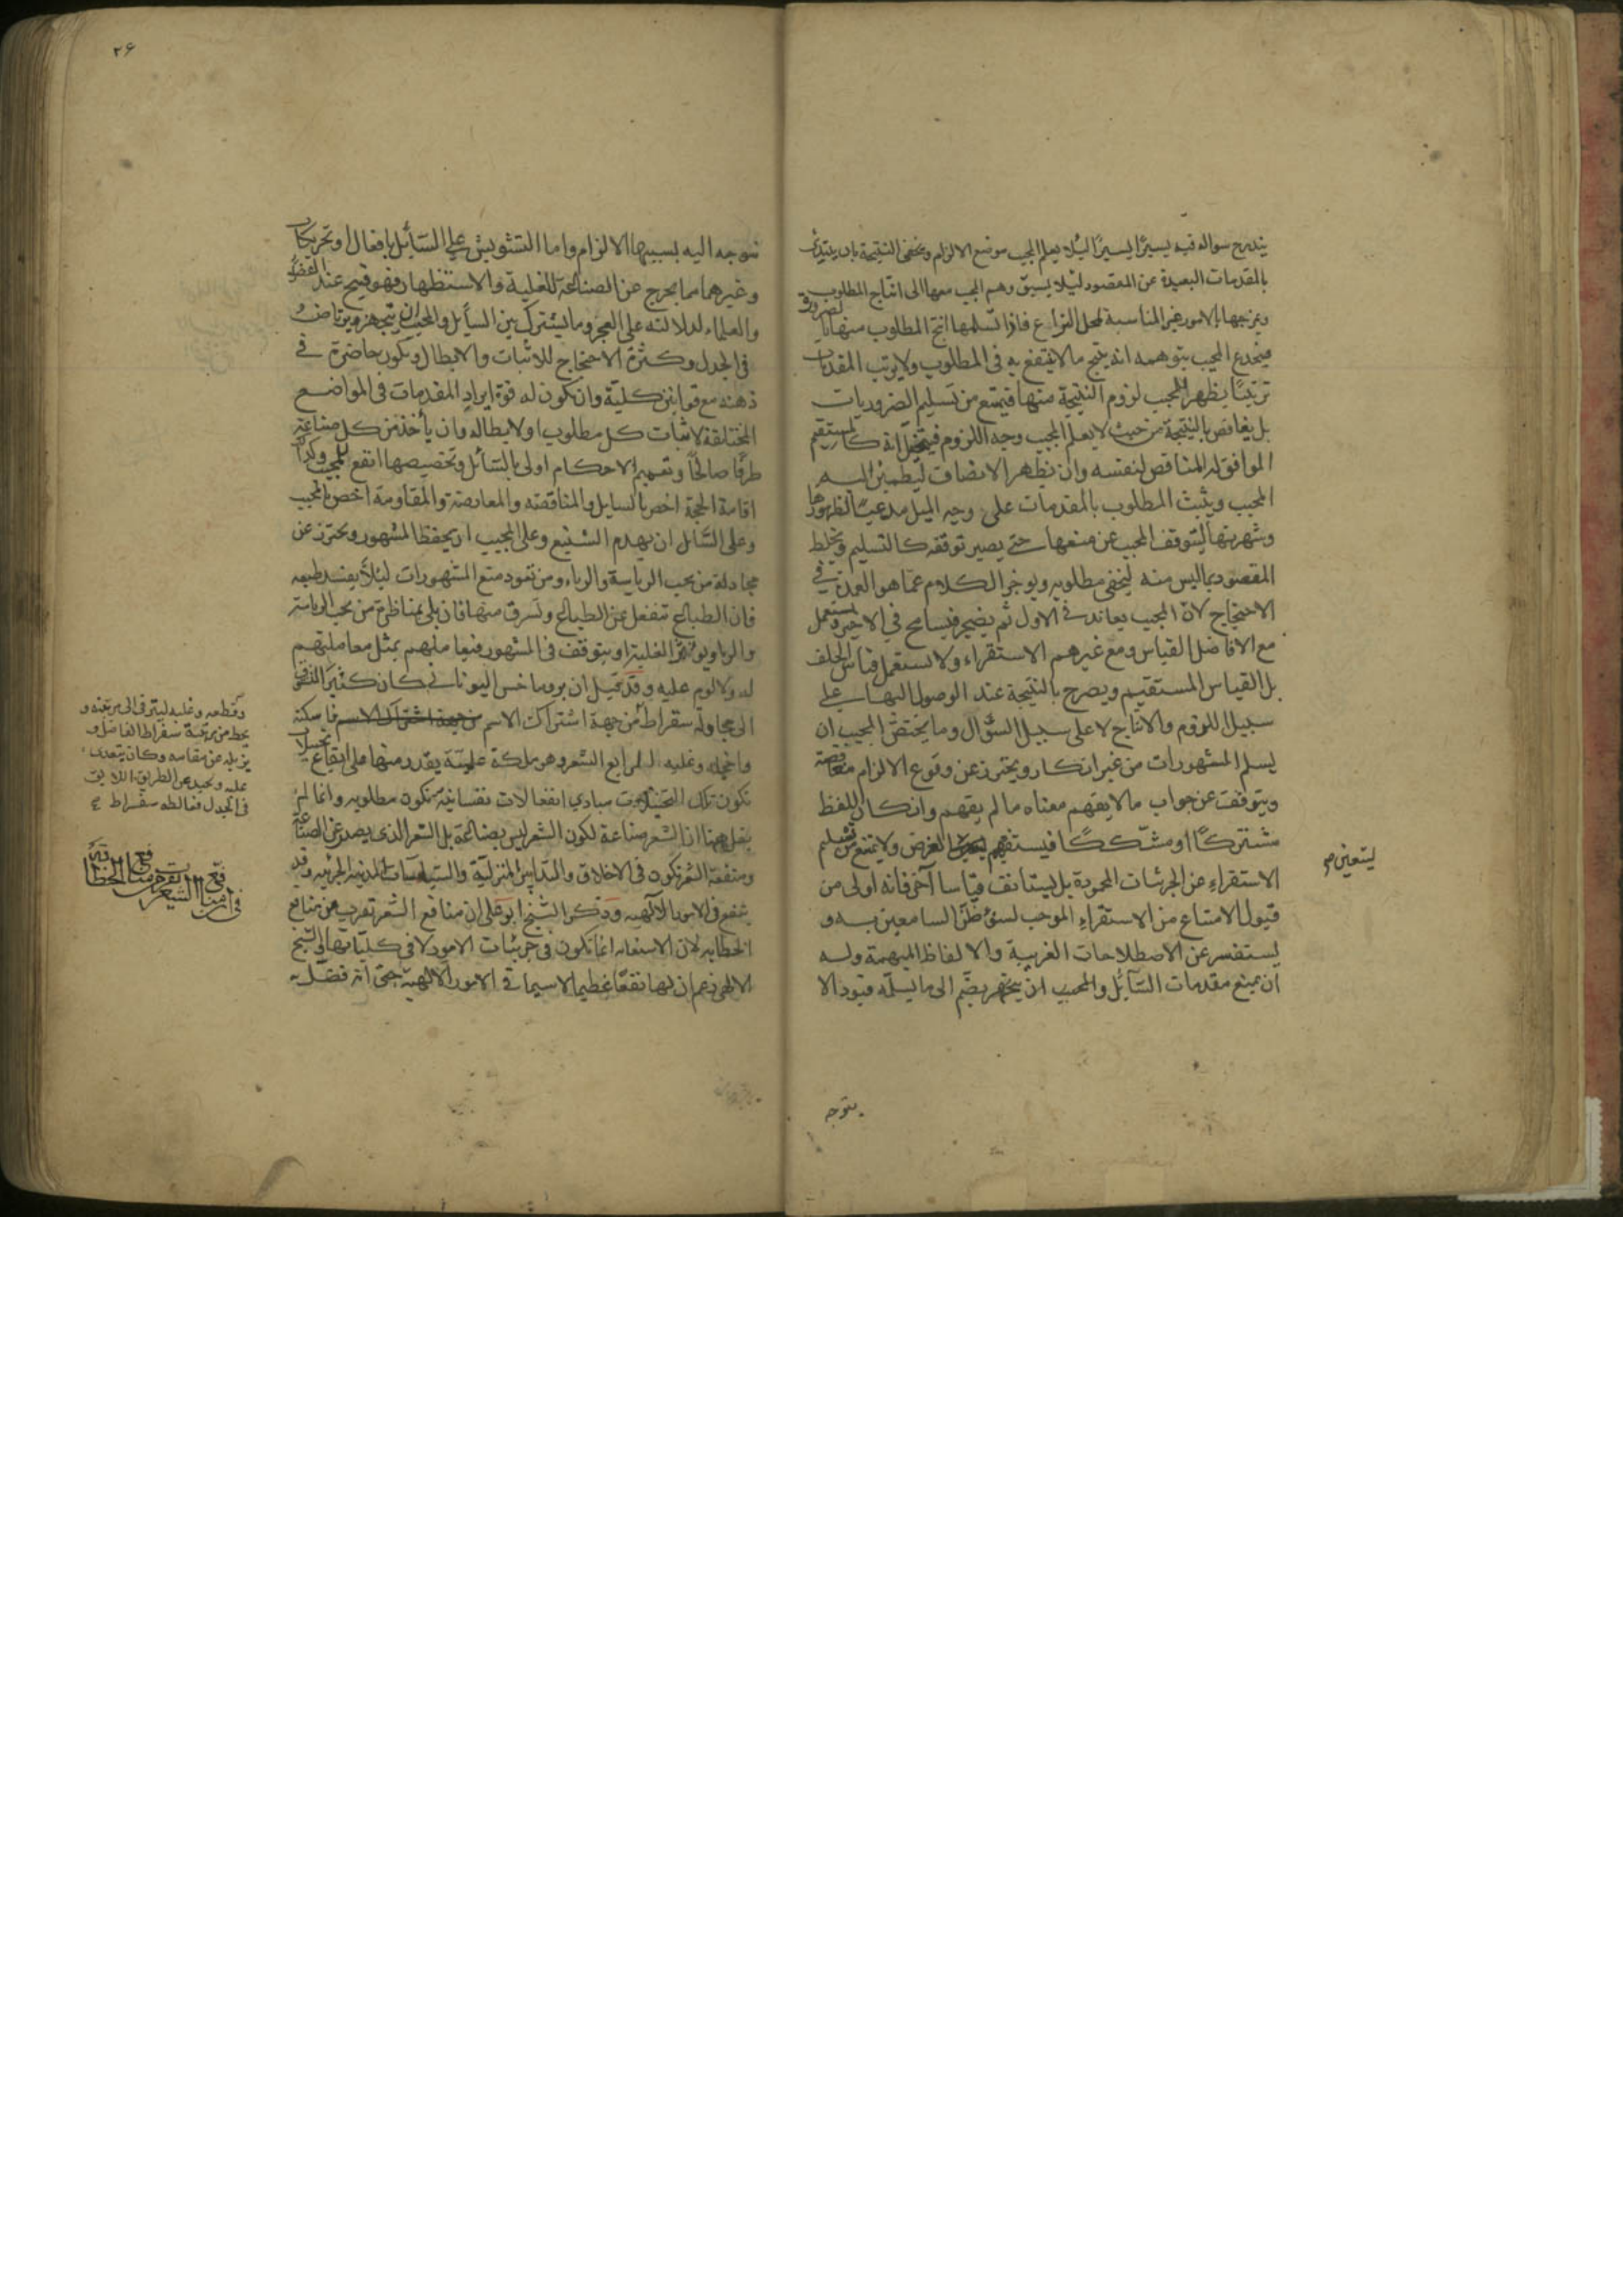 يتدرج سواله فيه يسيرًا يسيرًا لئلا يعلم المجيب موضع الالزام ويخفى النتيجة بان يبتدئ
بالمقدمات البعيدة عن المقصود لئلا يسبق وهم المجيب معها الى انتاج المطلوب
ويمزجها بالامور غير المناسبة لمحل النزاع فاذا تسلمها انتج المطلوب منها بالضرورة
فينخدع المجيب بتوهمه انه ينتج ما لا ينتفع به فى المطلوب ولا يرتب المقدمات
ترتيبًا يظهر للمجيب لزوم النتيجة منها فيمتنع من تسليم الضروريات
بل يغافص بالنتيجة من حيث لا يعلم المجيب وجه اللزوم فيتخيل انه كالمستقيم
الموافق له المناقص لنفسه وان يظهر الانصاف ليطمئن اليه
المجيب ويثبت المطلوب بالمقدمات على وجه الميل مدعيًا لظهورها
وشهرتها ليتوقف المجيب عن منعها حتى يصير توقفه كالتسليم ويخلط
المقصود بما ليس منه ليخفى مطلوبه ويوخر الكلام عما هو العمدة فى
الاحتجاج لان المجيب يعاند فى الاول ثم يضجر فيسامح فى الاخير ويستعمل
مع الافاضل القياس ومع غيرهم الاستقراء ولا يستعمل قياس الخلف
بل القياس المستقيم ويصرح بالنتيجة عند الوصول اليها على
سبيل اللزوم والانتاج لا على سبيل السؤال وما يختص المجيب ان
يسلم المشهورات من غير انكار ويحترز عن وقوع الالزام مغافصة
ويتوقف عن جواب ما لا يفهم معناه ما لم يفهم وان كان اللفظ
مشتركًا او مشككًا فيستفهم الغرض ولا يمتنع من تسليم
الاستقراء عن الجزئيات المحمودة بل يستانف قياسا آخر فانه اولى من
قبول الامتناع من الاستقراء الموجب لسوء ظن السامعين به و
يستفسر عن الاصطلاحات الغريبة والالفاظ المبهمة وله
ان يمنع مقدمات السائل والمجيب ان يضم الى ما يسلمه قيود الا
ليتعين صح
يتوجه
٢۶
يتوجه اليه بسببها الالزام واما التشويش على السائل بافعال او تحريكات
وغيرهما مما يخرج عن الصناعة للغلبة والاستظهار فهو قبيح عند الفضلاء
والعلماء لدلالته على العجز وما يشترك بين السائل والمجيب ان يتمهر ويرتاض
فى الجدل وكثرة الاحتجاج للاثبات والابطال ويكون حاضرة فى
ذهنه مع قوانين كلية وان يكون له قوة ايراد المقدمات فى المواضع
المختلفة لاثبات كل مطلوب او لابطاله وان يأخذ من كل صناعة
طرفًا صالحًا وتعميم الاحكام اولى بالسائل وتخصيصها انفع للمجيب وكذا
اقامة الحجة اخص بالسايل والمناقضة والمعارضة والمقاومة اخص بالمجيب
وعلى السائل ان يهدم الشنيع وعلى المجيب ان يحفظ المشهور ويحترز عن
مجادلة من يحب الرياسة والرياء ومن تعود منع المشهورات لئلا يفسد طبعه
فان الطبائع تنفعل عن الطبائع وتسرق منها فان بلى بمناظرة من يحب الرياسة
والريا ويوثر الغلبة او يتوقف فى المشهور فيعاملهم بمثل معاملتهم
له ولا لوم عليه وقد قيل ان بروماخس اليونانى كان كثير التشوق
الى مجاولة سقراط من جهة اشتراك الاسم فاسكته
واخجله وغلبه الرابع الشعر وهو ملكة علمية يقدر منها على ايقاع تخييلات
تكون تلك التخييلات مبادى انفعالات نفسانية تكون مطلوبه وانما لم
يقل ههنا ان الشعر صناعة لكون الشعر ليس بصناعة بل الشعر الذى يصدر عن الصناعة
ومنفعة الشعر تكون فى الاخلاق والتدابير المنزلية والسياسات المدنية الجزئية وقد
ينفع فى الامور الالهيه وذكر الشيخ ابو على ان منافع الشعر تقرب من منافع
الخطابه لان الاستعانه انما تكون فى جزئيات الامور لا فى كلياتها والشيخ
الالهى زعم ان لها نفعًا عظيما لا سيما فى الامور الالهية حتى انه فضله
وقطعه وغلبه ليترقى الى مرتبته و
يحط من مرتبة سقراط الفاضل و
يزيله عن مقامه وكان يتعدى
عليه ويحيد عن الطريق اللايق
فى الجدل فغالطه سقراط صح
فى ان منافع الشعر تقرب من منافع الخطابة